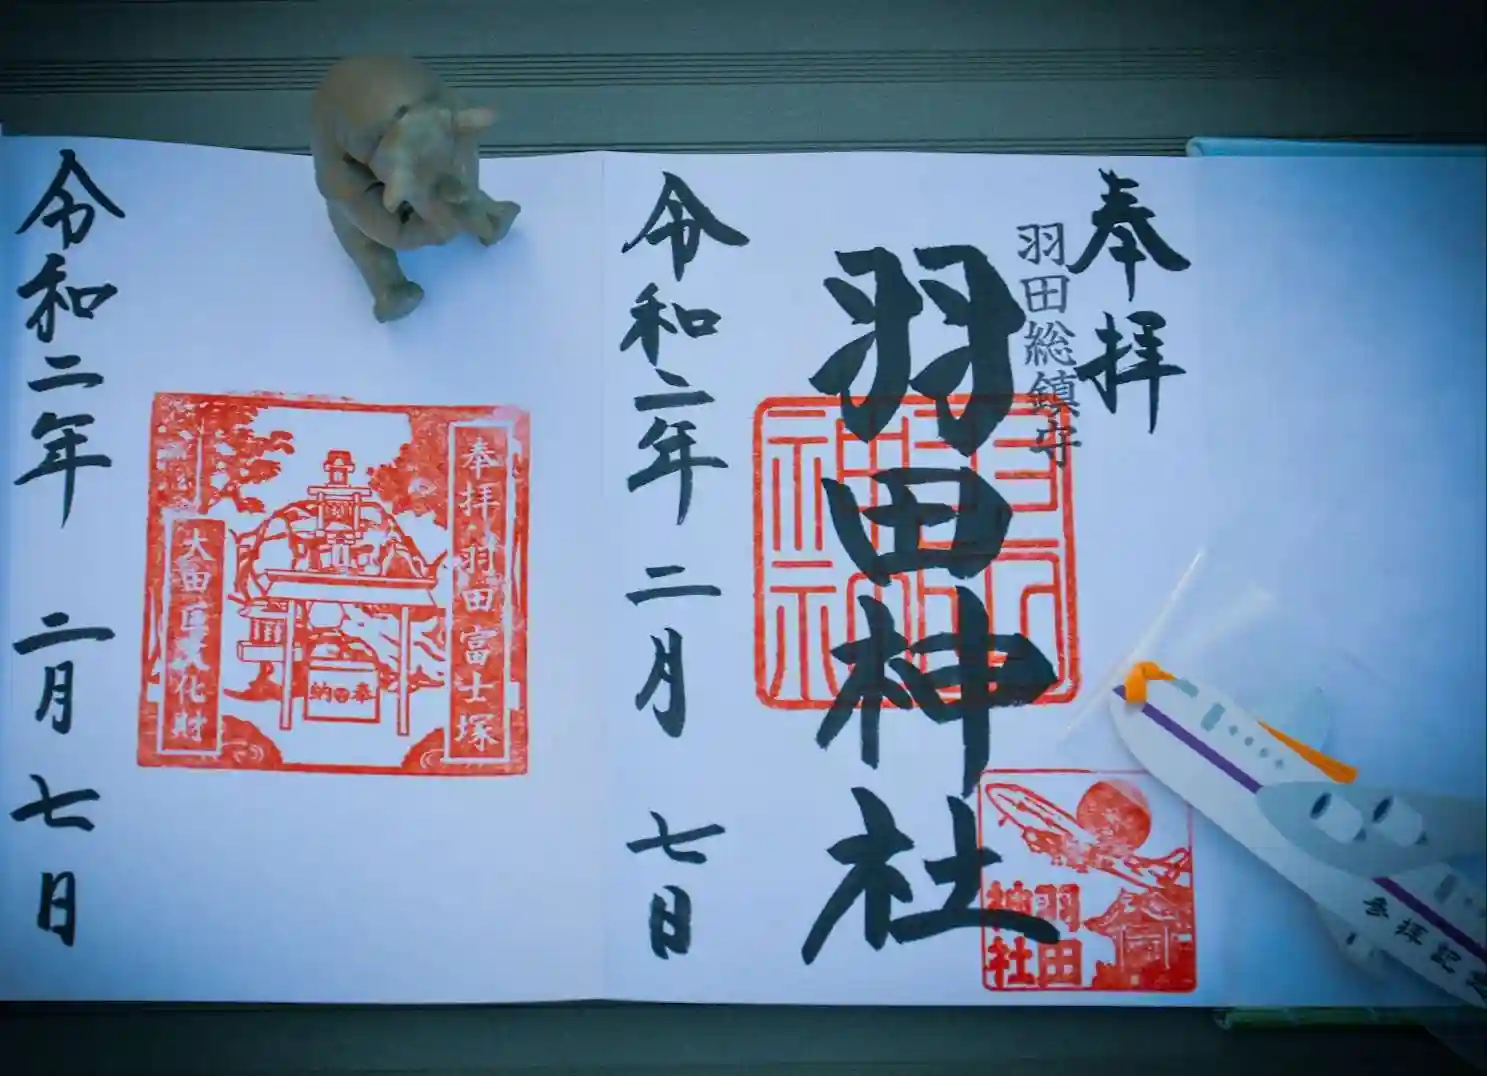 奉拝
羽田総鎮守
羽田神社
羽田神社
羽田
神社
令和二年 二月 七日
参拝記念
奉拝 羽田富士塚
奉納
大田区文化財
令和二年 二月 七日